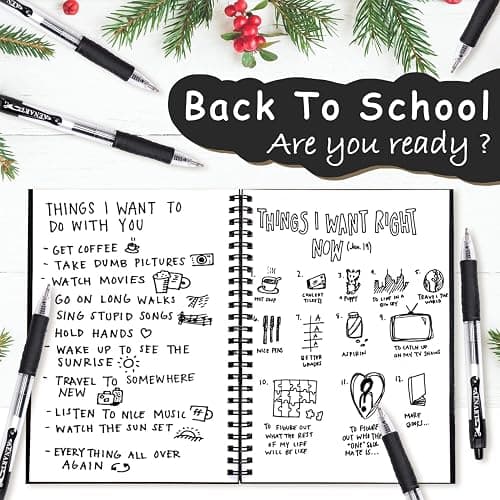 Back To School
Are you ready ?
THINGS I WANT TO
DO WITH YOU
- GET COFFEE
- TAKE DUMB PICTURES
- WATCH MOVIES
GO ON LONG WALKS
SING STUPID SONGS
HOLD HANDS ♡
- WAKE UP TO SEE THE
SUNRISE
- TRAVEL TO SOMEWHERE
NEW
- LISTEN TO NICE MUSIC
- WATCH THE SUN SET
- EVERYTHING ALL OVER
AGAIN
THINGS I WANT RIGHT
NOW (Jan. 19)
1. HOT SOUP
2. CONCERT
TICKETS
3. A PUPPY
4. TO LIVE IN A
BIG CITY
5. TRAVEL THE
WORLD
6. NICE PENS
7. BETTER
GRADES
8. ASPIRIN
9. TO CATCH UP
ON MY TV SHOWS
10. TO FIGURE OUT
WHAT THE REST
OF MY LIFE
WILL BE LIKE
11. TO FIGURE
OUT WHO THE
"ONE" SOUL
MATE IS...
12. MORE
BOOKS...